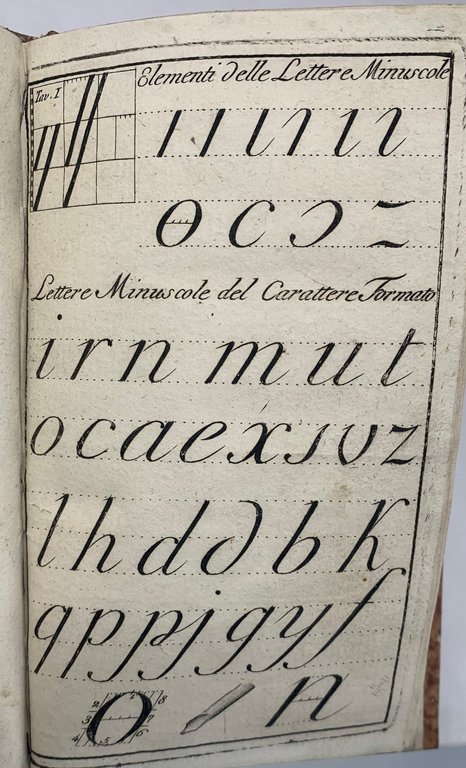 Tav. I
Elementi delle Lettere Minuscole
o c ɔ z
Lettere Minuscole del Carattere Formato
i r n m u t
o c a e x s v z
l h d ∂ b k
q p p j g y f
2 3 4 5 6 7 8
o n